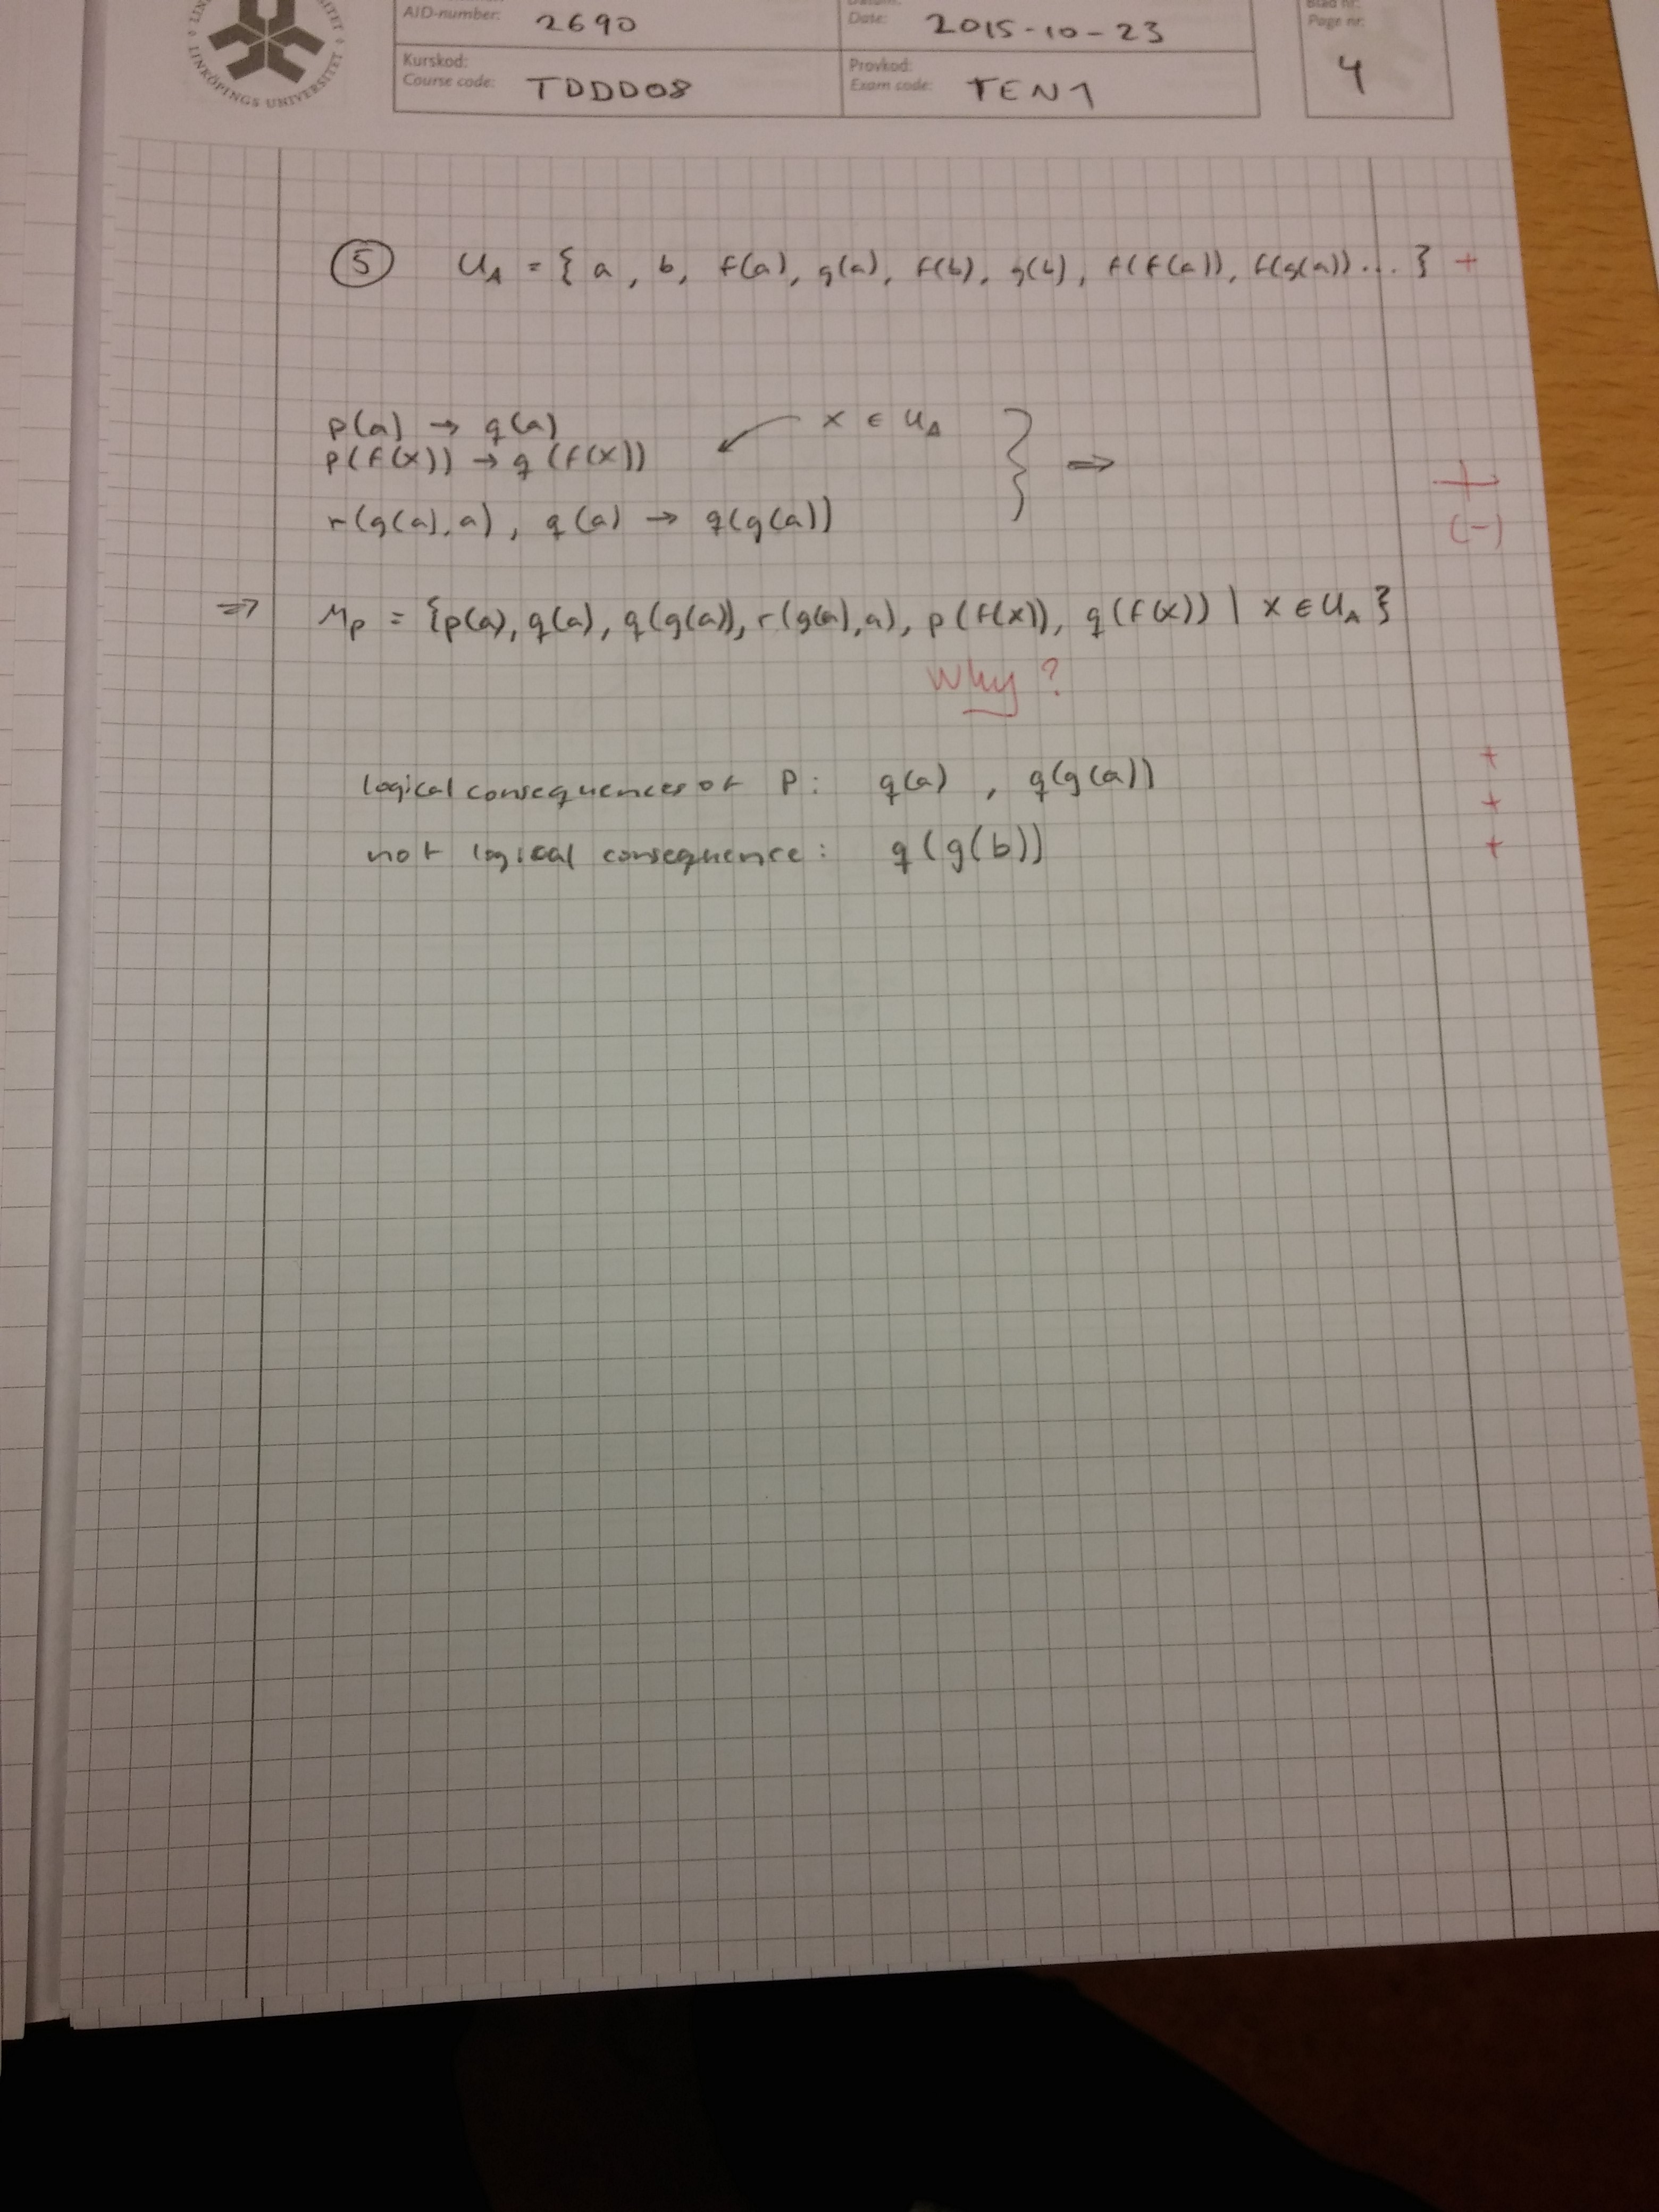 LINKÖPINGS UNIVERSITET
AID-number: 2690
Date: 2015-10-23
Page nr: 4
Kurskod:
Course code: TDDD08
Provkod:
Exam code: TEN1
5 U_A = { a, b, f(a), g(a), f(b), g(b), f(f(a)), f(g(a)) ... } +
p(a) → q(a)
p(f(x)) → q(f(x)) x ∈ U_A } ⇒
r(g(a), a), q(a) → q(g(a))
+
(-)
⇒ M_P = {p(a), q(a), q(g(a)), r(g(a),a), p(f(x)), q(f(x)) | x ∈ U_A }
Why?
logical consequences of P: q(a) , q(g(a)) + +
not logical consequence: q(g(b)) +